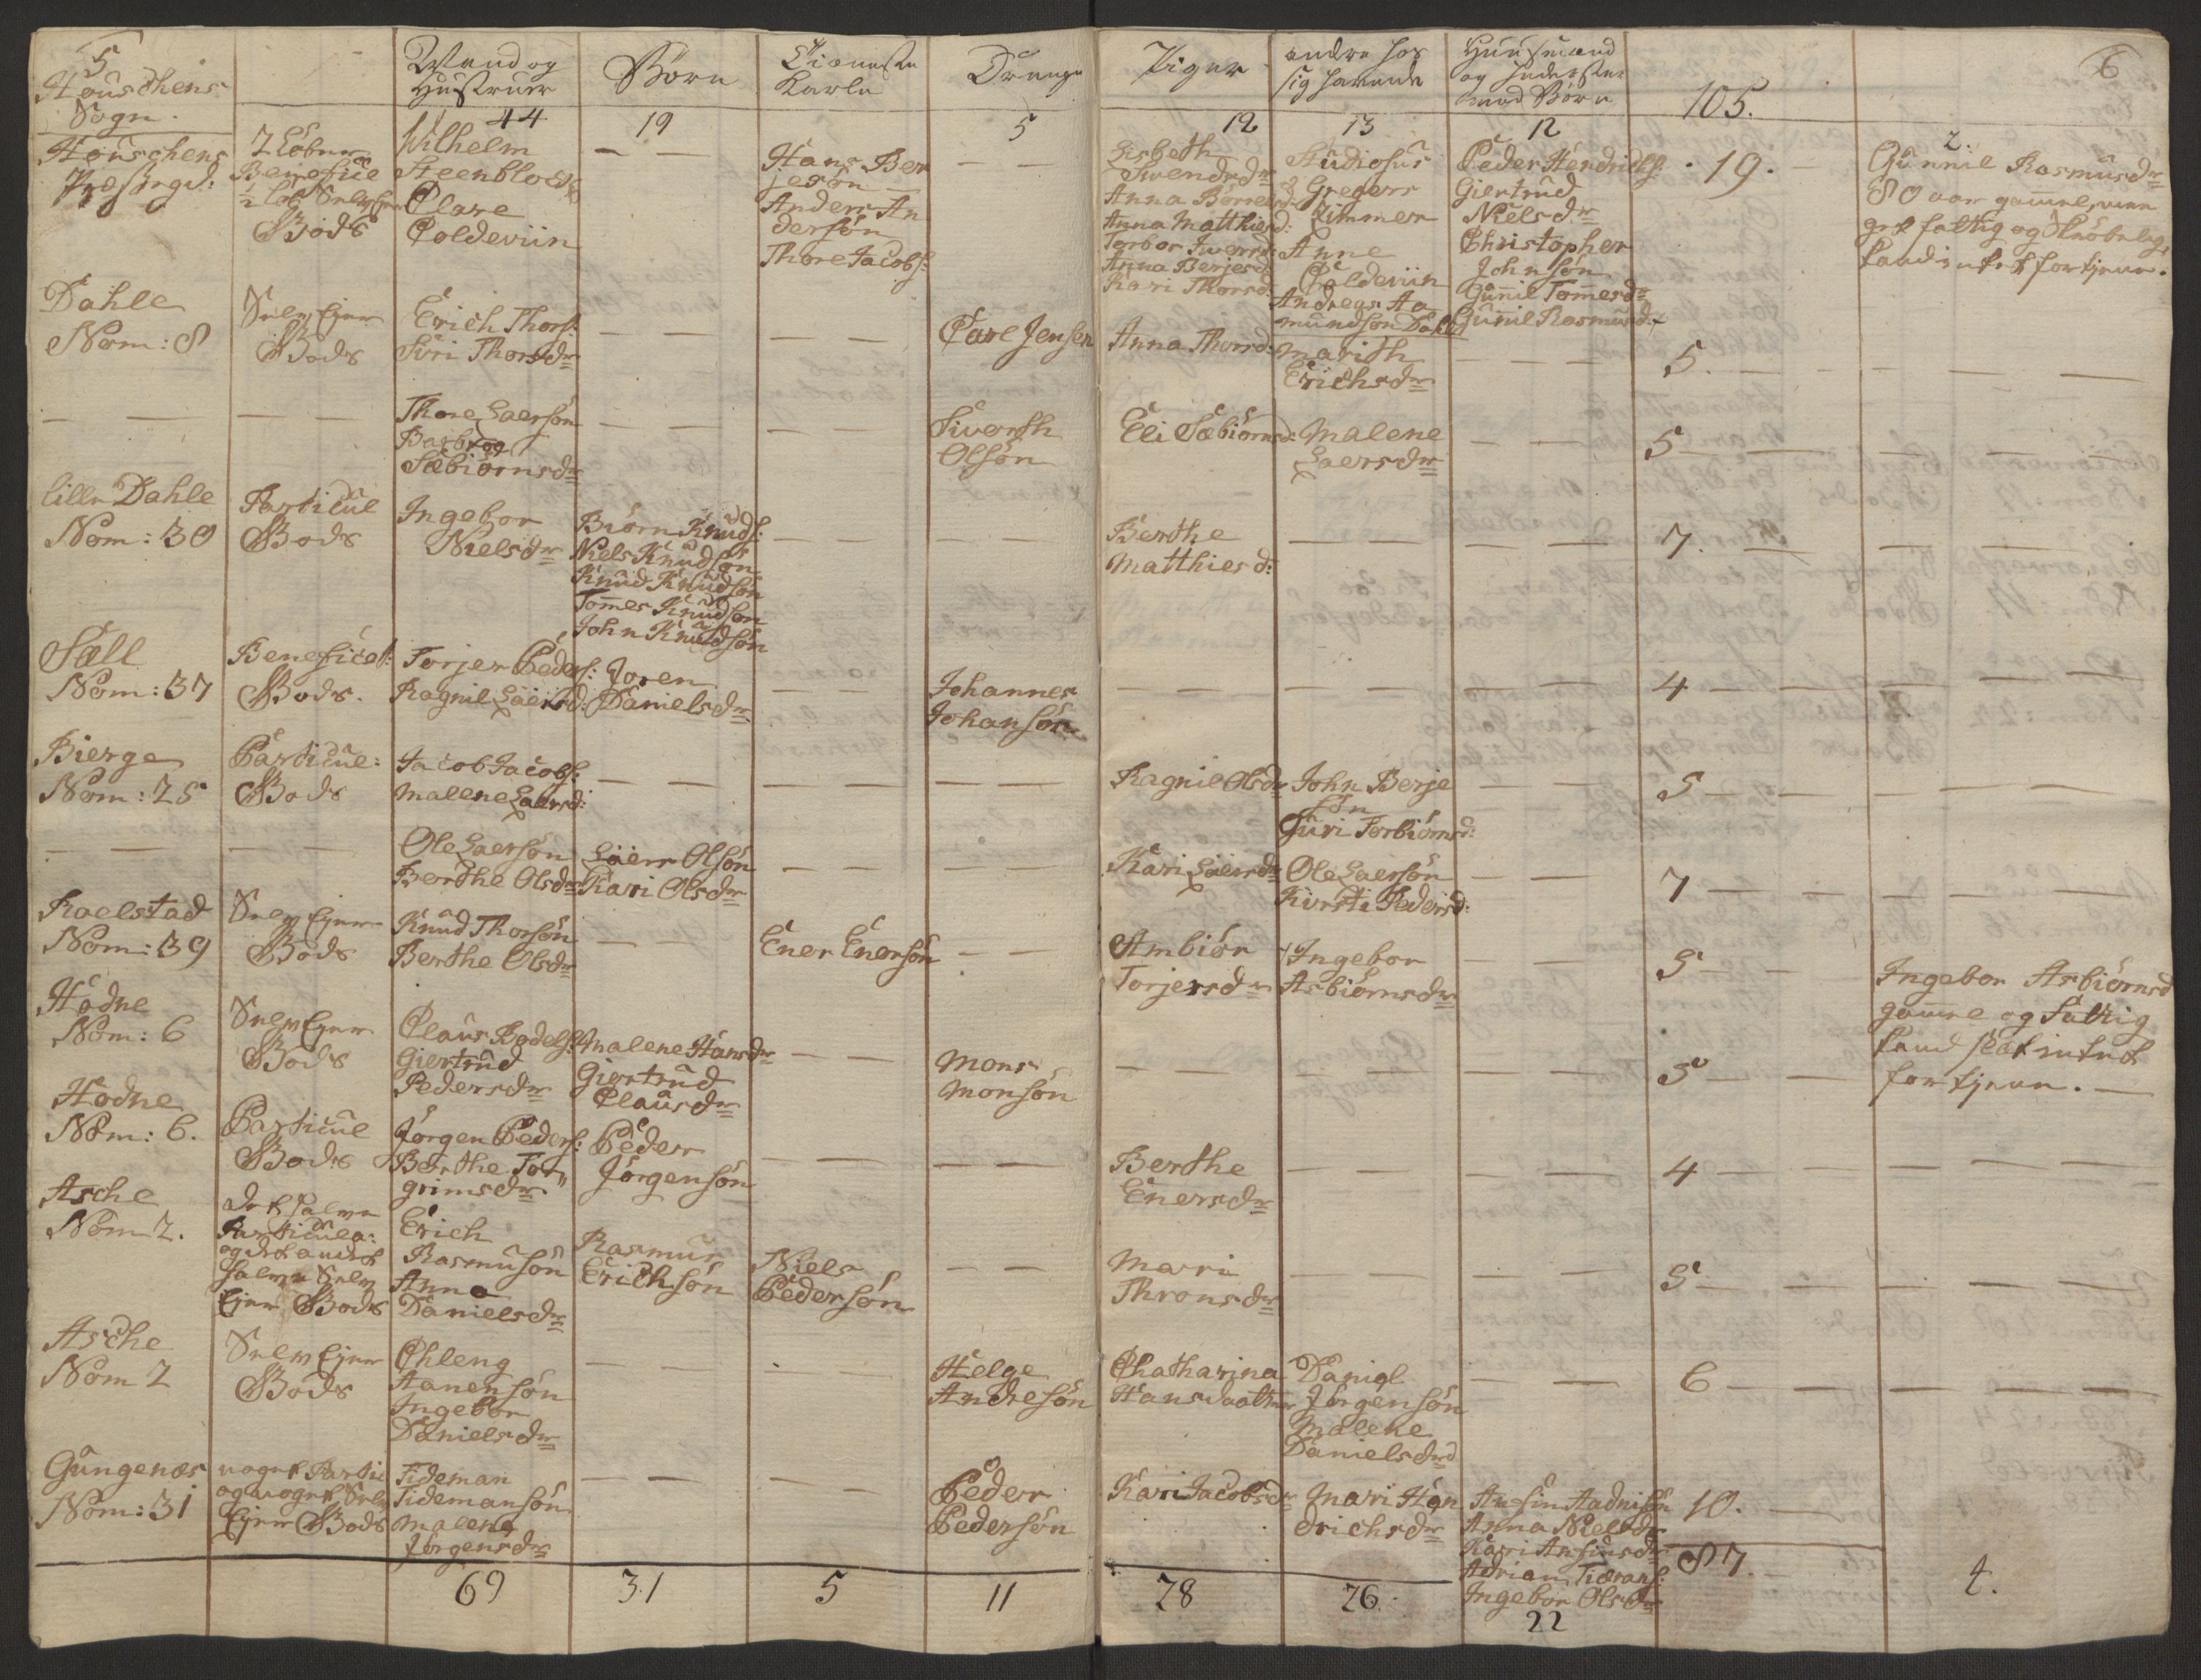 5
Høuschens
Sogn.
Mænd og
Hustruer
Børn
Tieneste
Karle
Drenge
Piger
andre hos
sig havende
Huusmænd
og Inderster
med Børn
105.
6
44
19
5
12
13
12
2.
Høuschens
Præstegd:
2 Løber
Benefice
½ Løb Selvejer
Bods
Wilhelm
Steenblock
Clare
Coldeviin
— —
Hans Ber
jesøn
Anders An
dersøn
Thore Jacobs:
— —
Lisbeth
Svendsdr
Anna Børresd:
Anna Matthiesd:
Torbor Iversd:
Anna Berjesd
Kari Thorsd:
Studiosus
Gregers
Zimmer
Anne
Coldeviin
Andreas Aa
mundson Dahl
Peder Hendrichs:
Giertrud
Nielsdr
Christopher
Johnsøn
Gunnil Tommesdr
Gunnil Rasmusdr
19.
Gunnil Rasmusdr
80 aar gammel, meer
get fattig og skrøbelig,
kand intet fortjene.
Dahle
Nom: 8
Selv Ejer
Bods
Erich Thors:
Siri Thorsdr
— —
— —
Carl Jensen
Anna Thorsd:
Marith
Erichsdr
— —
5. — — —
— —
— —
Thore Laersøn
Barbroe
Sæbiørnsdr
— —
— —
Siverth
Olsøn
Eli Sæbiørnsd:
Malene
Laersdr
— —
5 — — —
lille Dahle
Nom: 30
Particul
Bods
Ingebor
Nielsdr
Biørn Knuds:
Niels Knudsøn
Knud Knudsøn
Tommes Knudsøn
John Knudsøn
— —
— —
Berthe
Matthiesd:
— —
— —
7. — — —
Sæll
Nom: 37
Beneficet:
Bods.
Torjer Peders:
Ragnil Laersd:
Joren
Danielsdr
— —
Johannes
Johansøn
— —
— —
— —
4 — — —
Bierge
Nom: 25
Particul:
Bods
Jacob Jacobs:
Malene Laersd:
— —
— —
— —
Ragnil Olsdr
John Berje
søn
Suri Torbiørnsd:
— —
5 — — —
— —
— —
Ole Laersøn
Berthe Olsdr
Laers Olsøn
Kari Olsdr
— —
— —
Kari Laersdr
Ole Laersøn
Kirsti Pedersd:
— —
7 — — —
Raelstad
Nom: 39
Selv Ejer
Bods
Knud Thorsøn
Berthe Olsdr
— —
Ener Enersøn
— —
Ambiør
Torjersdr
Ingebor
Asbiørnsdr
— —
5 — —
Ingebor Asbiørnsd
gammel og fattig
kand slet intet
fortjene. —
Hødne
Nom: 6
Selv Ejer
Bods
Claus Bodels:
Giertrud
Pedersdr
Malene Hansdr
Giertrud
Clausdr
— —
Mons
Monsøn
— —
— —
— —
5 — —
Hødne
Nom: 6.
Particul
Bods
Jørgen Peders:
Berthe Tor
grimsdr
Peder
Jørgensøn
— —
— —
Berthe
Enersdr
— —
— —
4 — — —
Asche
Nom 2.
det halve
Particula:
og det andet
halve Selv
Ejer Bods
Erich
Rasmusøn
Anna
Danielsdr
Rasmus
Erichsøn
Niels
Pedersøn
— —
Mari
Thronsdr
— —
— —
5 — — —
Asche
Nom 2
Selv Ejer
Bods
Chleng
Aanensøn
Ingebor
Danielsdr
— —
— —
Helge
Andresøn
Chatharina
Hansdaatter
Daniel
Jørgensøn
Malene
Danielsdr
— —
6 — — —
Gungenæs
Nom: 31
noget Parti
og noget Selv
Ejer Bods
Tideman
Tidemansøn
Malene
Jørgensdr
— —
— —
Peder
Pedersøn
Kari Jacobsdr
Mari Hen
drichsdr
Ansin Aadnisøn
Anna Nielsdr
Kari Ansinsdr
Adrian Tiørans:
Ingebor Olsdr
10. —
87.
4.
69
31
5
11
28
26.
22